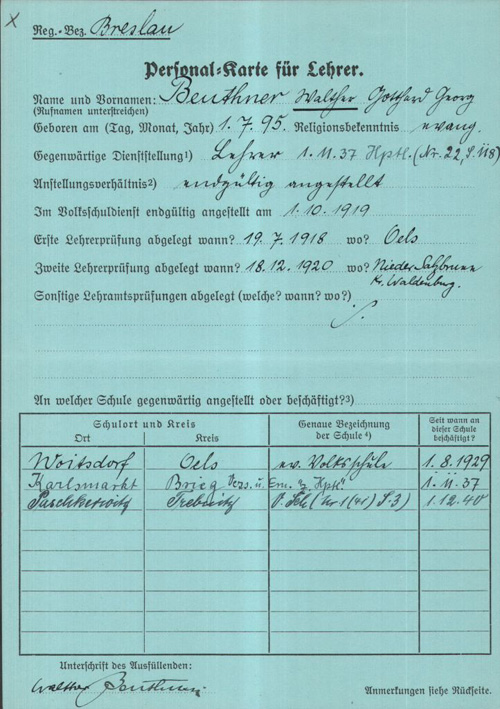 x
Reg.-Bez. Breslau
Personal-Karte für Lehrer.
Name und Vornamen: Beuthner Walther Gotthard Georg
(Rufnamen unterstreichen)
Geboren am (Tag, Monat, Jahr) 1. 7. 95. Religionsbekenntnis evang.
Gegenwärtige Dienststellung¹) Lehrer 1. 11. 37 Hptl. (Nr. 22, S. 118)
Anstellungsverhältnis²) endgültig angestellt
Im Volksschuldienst endgültig angestellt am 1. 10. 1919
Erste Lehrerprüfung abgelegt wann? 19. 7. 1918 wo? Oels
Zweite Lehrerprüfung abgelegt wann? 18. 12. 1920 wo? Nieder Salzbrunn
Kr. Waldenburg.
Sonstige Lehramtsprüfungen abgelegt (welche? wann? wo?)
An welcher Schule gegenwärtig angestellt oder beschäftigt?³)
Schulort und Kreis Genaue Bezeichnung der Schule ⁴) Seit wann an dieser Schule beschäftigt?
Ort Kreis
Woitsdorf Oels ev. Volksschule 1. 8. 1929
Karlsmarkt Brieg Vers. u. Ern. z. Hptl. 1. 11. 37
Paschkerwitz Trebnitz 1. 12. 40
Unterschrift des Ausfüllenden:
Walther Beuthner.
Anmerkungen siehe Rückseite.